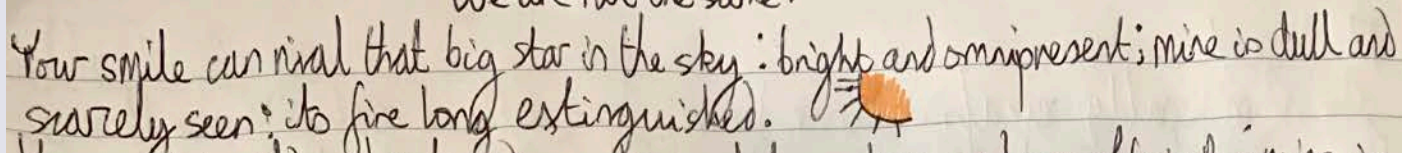 We are not the same.
Your smile can rival that big star in the sky: bright and omnipresent; mine is dull and
scarcely seen: its fire long extinguished.